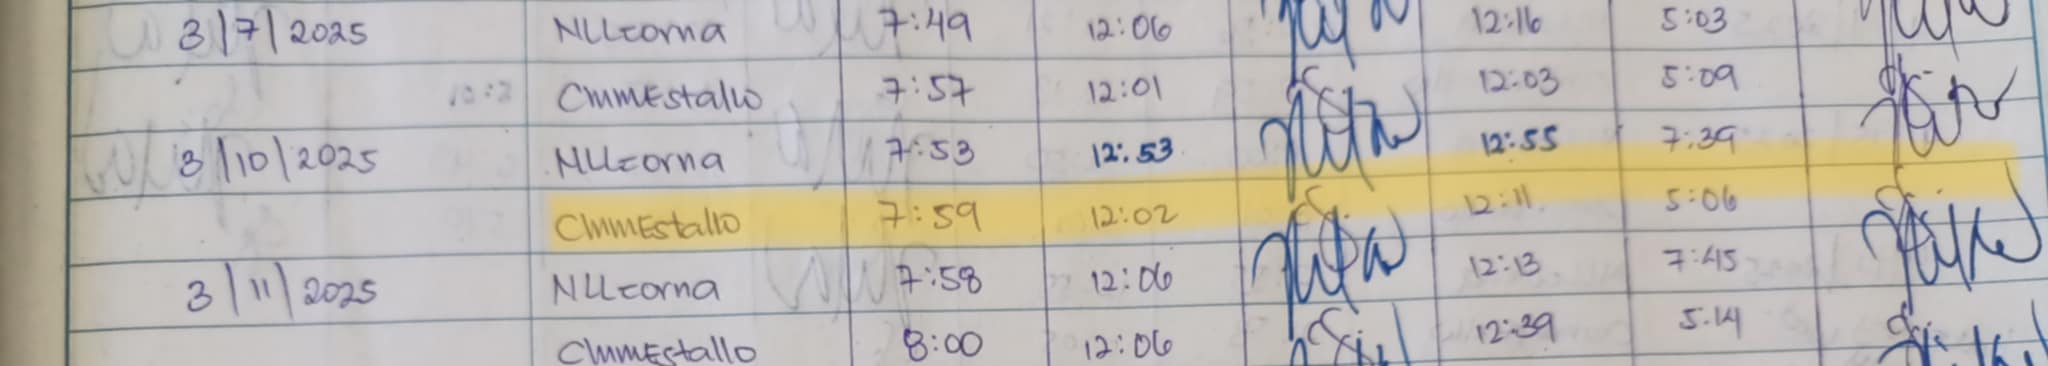 3/7/2025 NLLcorna 7:49 12:06 12:16 5:03
CMMEstallo 7:57 12:01 12:03 5:09
3/10/2025 NLLcorna 7:53 12:53 12:55 7:39
CMMEstallo 7:59 12:02 12:11 5:06
3/11/2025 NLLcorna 7:58 12:06 12:13 7:45
CMMEstallo 8:00 12:06 12:39 5:14